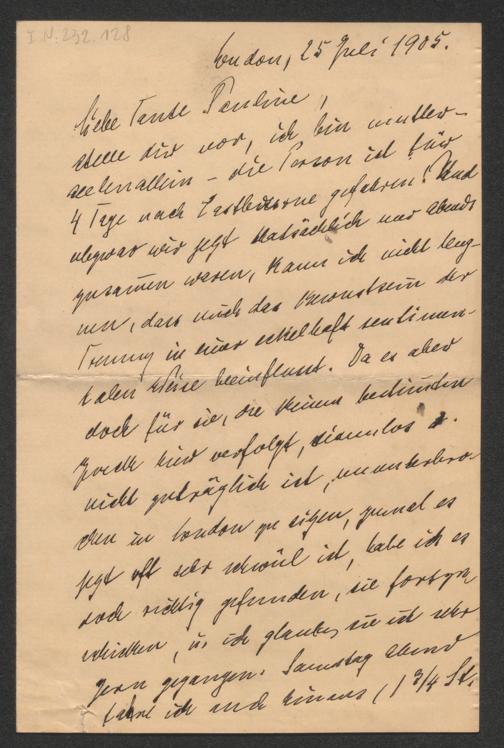 I.N. 232.128
London, 25 Juli 1905.
Liebe Tante Pauline,
stelle dir vor, ich bin mutter-
seelenallein – die Person ist für
4 Tage nach Eastbourne gefahren! Und
obzwar wir jetzt tatsächlich nur abends
zusammen waren, kann ich nicht leug-
nen, dass mich das Bewusstsein der
Trennung in einer ekelhaft sentimen-
talen Weise beeinflusst. Da es aber
doch für sie, die keinen bestimmten
Zweck hier verfolgt, sinnlos u.
nicht zuträglich ist, ununterbro-
chen in London zu sitzen, zumal es
jetzt oft sehr schwül ist, habe ich es
doch richtig gefunden, sie fortzu
schicken, u. ich glaube, sie ist sehr
gern gegangen. Samstag abend
fahre ich auch hinaus (1 3/4 St.